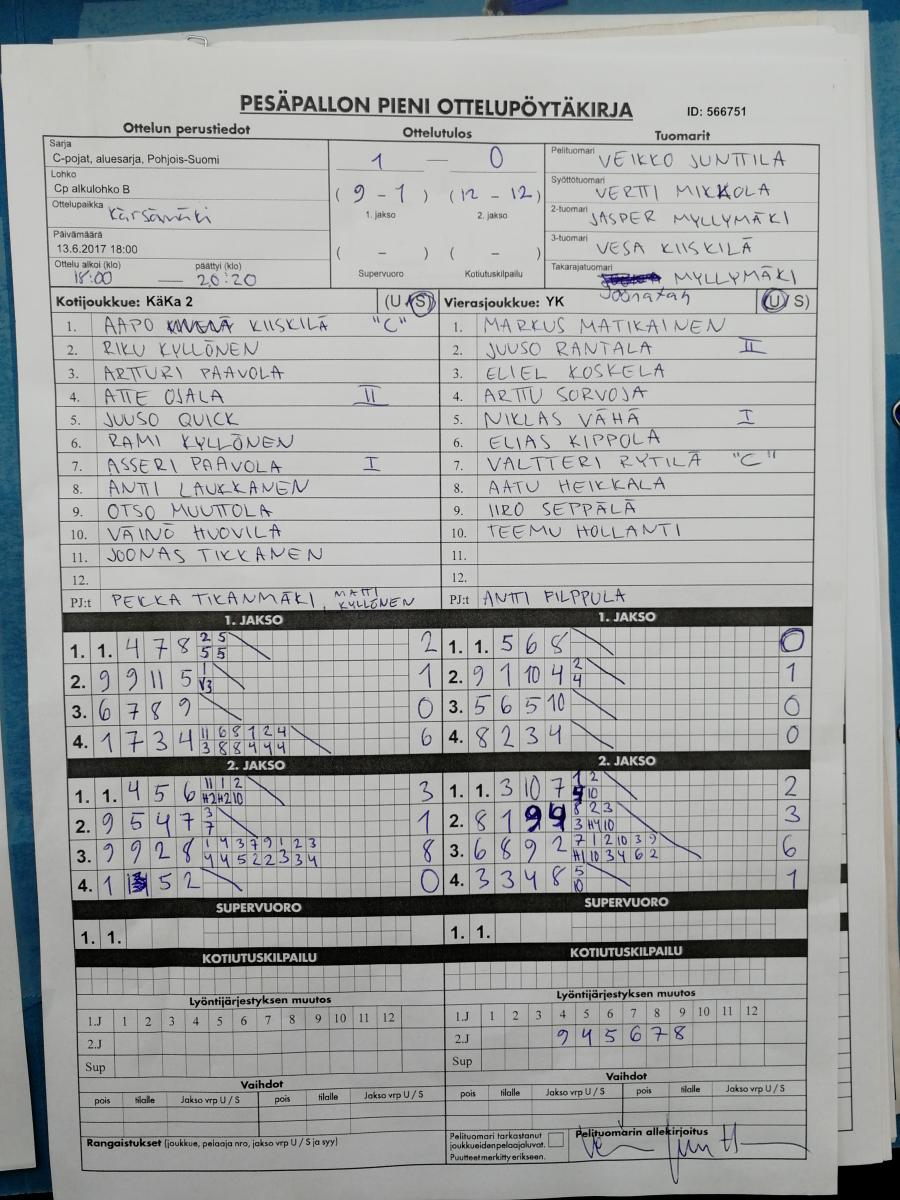 PESÄPALLON PIENI OTTELUPÖYTÄKIRJA ID: 566751
Ottelun perustiedot Ottelutulos Tuomarit
Sarja
C-pojat, aluesarja, Pohjois-Suomi
Lohko
Cp alkulohko B
Ottelupaikka Kärsämäki
Päivämäärä
13.6.2017 18:00
Ottelu alkoi (klo) päättyi (klo)
18:00 — 20:20
1 — 0
( 9 - 1 ) (12 - 12)
1. jakso 2. jakso
( - ) ( - )
Supervuoro Kotiutuskilpailu
Pelituomari VEIKKO JUNTTILA
Syöttötuomari VERTTI MIKKOLA
2-tuomari JASPER MYLLYMÄKI
3-tuomari VESA KIISKILÄ
Takarajatuomari MYLLYMÄKI
Joonatan
Kotijoukkue: KäKa 2 (U / S)
1. AAPO KIISKILÄ "C"
2. RIKU KYLLÖNEN
3. ARTTURI PAAVOLA
4. ATTE OJALA II
5. JUUSO QUICK
6. RAMI KYLLÖNEN
7. ASSERI PAAVOLA I
8. ANTTI LAUKKANEN
9. OTSO MUUTTOLA
10. VÄINÖ HUOVILA
11. JOONAS TIKKANEN
12.
PJ:t PEKKA TIKANMÄKI, MATTI KYLLÖNEN
Vierasjoukkue: YK (U / S)
1. MARKUS MATIKAINEN
2. JUUSO RANTALA II
3. ELIEL KOSKELA
4. ARTTU SORVOJA
5. NIKLAS VÄHÄ I
6. ELIAS KIPPOLA
7. VALTTERI RYTILÄ "C"
8. AATU HEIKKALA
9. IIRO SEPPÄLÄ
10. TEEMU HOLLANTI
11.
12.
PJ:t ANTTI FILPPULA
1. JAKSO
1. 1. 4 7 8 2 5 2
5 5
2. 9 9 11 5 1 1
V3
3. 6 7 8 9 0
4. 1 7 3 4 11 6 8 1 2 4 6
3 8 8 4 4 4
2. JAKSO
1. 1. 4 5 6 11 1 2 3
H2 H2 10
2. 9 5 4 7 3 1
7
3. 9 9 2 8 1 4 3 7 9 1 2 3 8
4 4 5 2 2 3 3 4
4. 1 5 2 0
SUPERVUORO
1. 1.
KOTIUTUSKILPAILU
Lyöntijärjestyksen muutos
1.J 1 2 3 4 5 6 7 8 9 10 11 12
2.J
Sup
Vaihdot
pois tilalle Jakso vrp U / S pois tilalle Jakso vrp U / S
Rangaistukset (joukkue, pelaaja nro, jakso vrp U / S ja syy)
1. JAKSO
1. 1. 5 6 8 0
2. 9 1 10 4 2 1
4
3. 5 6 5 10 0
4. 8 2 3 4 0
2. JAKSO
1. 1. 3 10 7 1 2 2
10
2. 8 1 9 4 8 2 3 3
3 H4 10
3. 6 8 9 2 7 1 2 10 3 9 6
H1 10 3 4 6 2
4. 3 3 4 8 5 1
10
SUPERVUORO
1. 1.
KOTIUTUSKILPAILU
Lyöntijärjestyksen muutos
1.J 1 2 3 4 5 6 7 8 9 10 11 12
2.J 9 4 5 6 7 8
Sup
Vaihdot
pois tilalle Jakso vrp U / S pois tilalle Jakso vrp U / S
Pelituomari tarkastanut
joukkueidenpelaajaluvat.
Puutteet merkitty erikseen.
Pelituomarin allekirjoitus